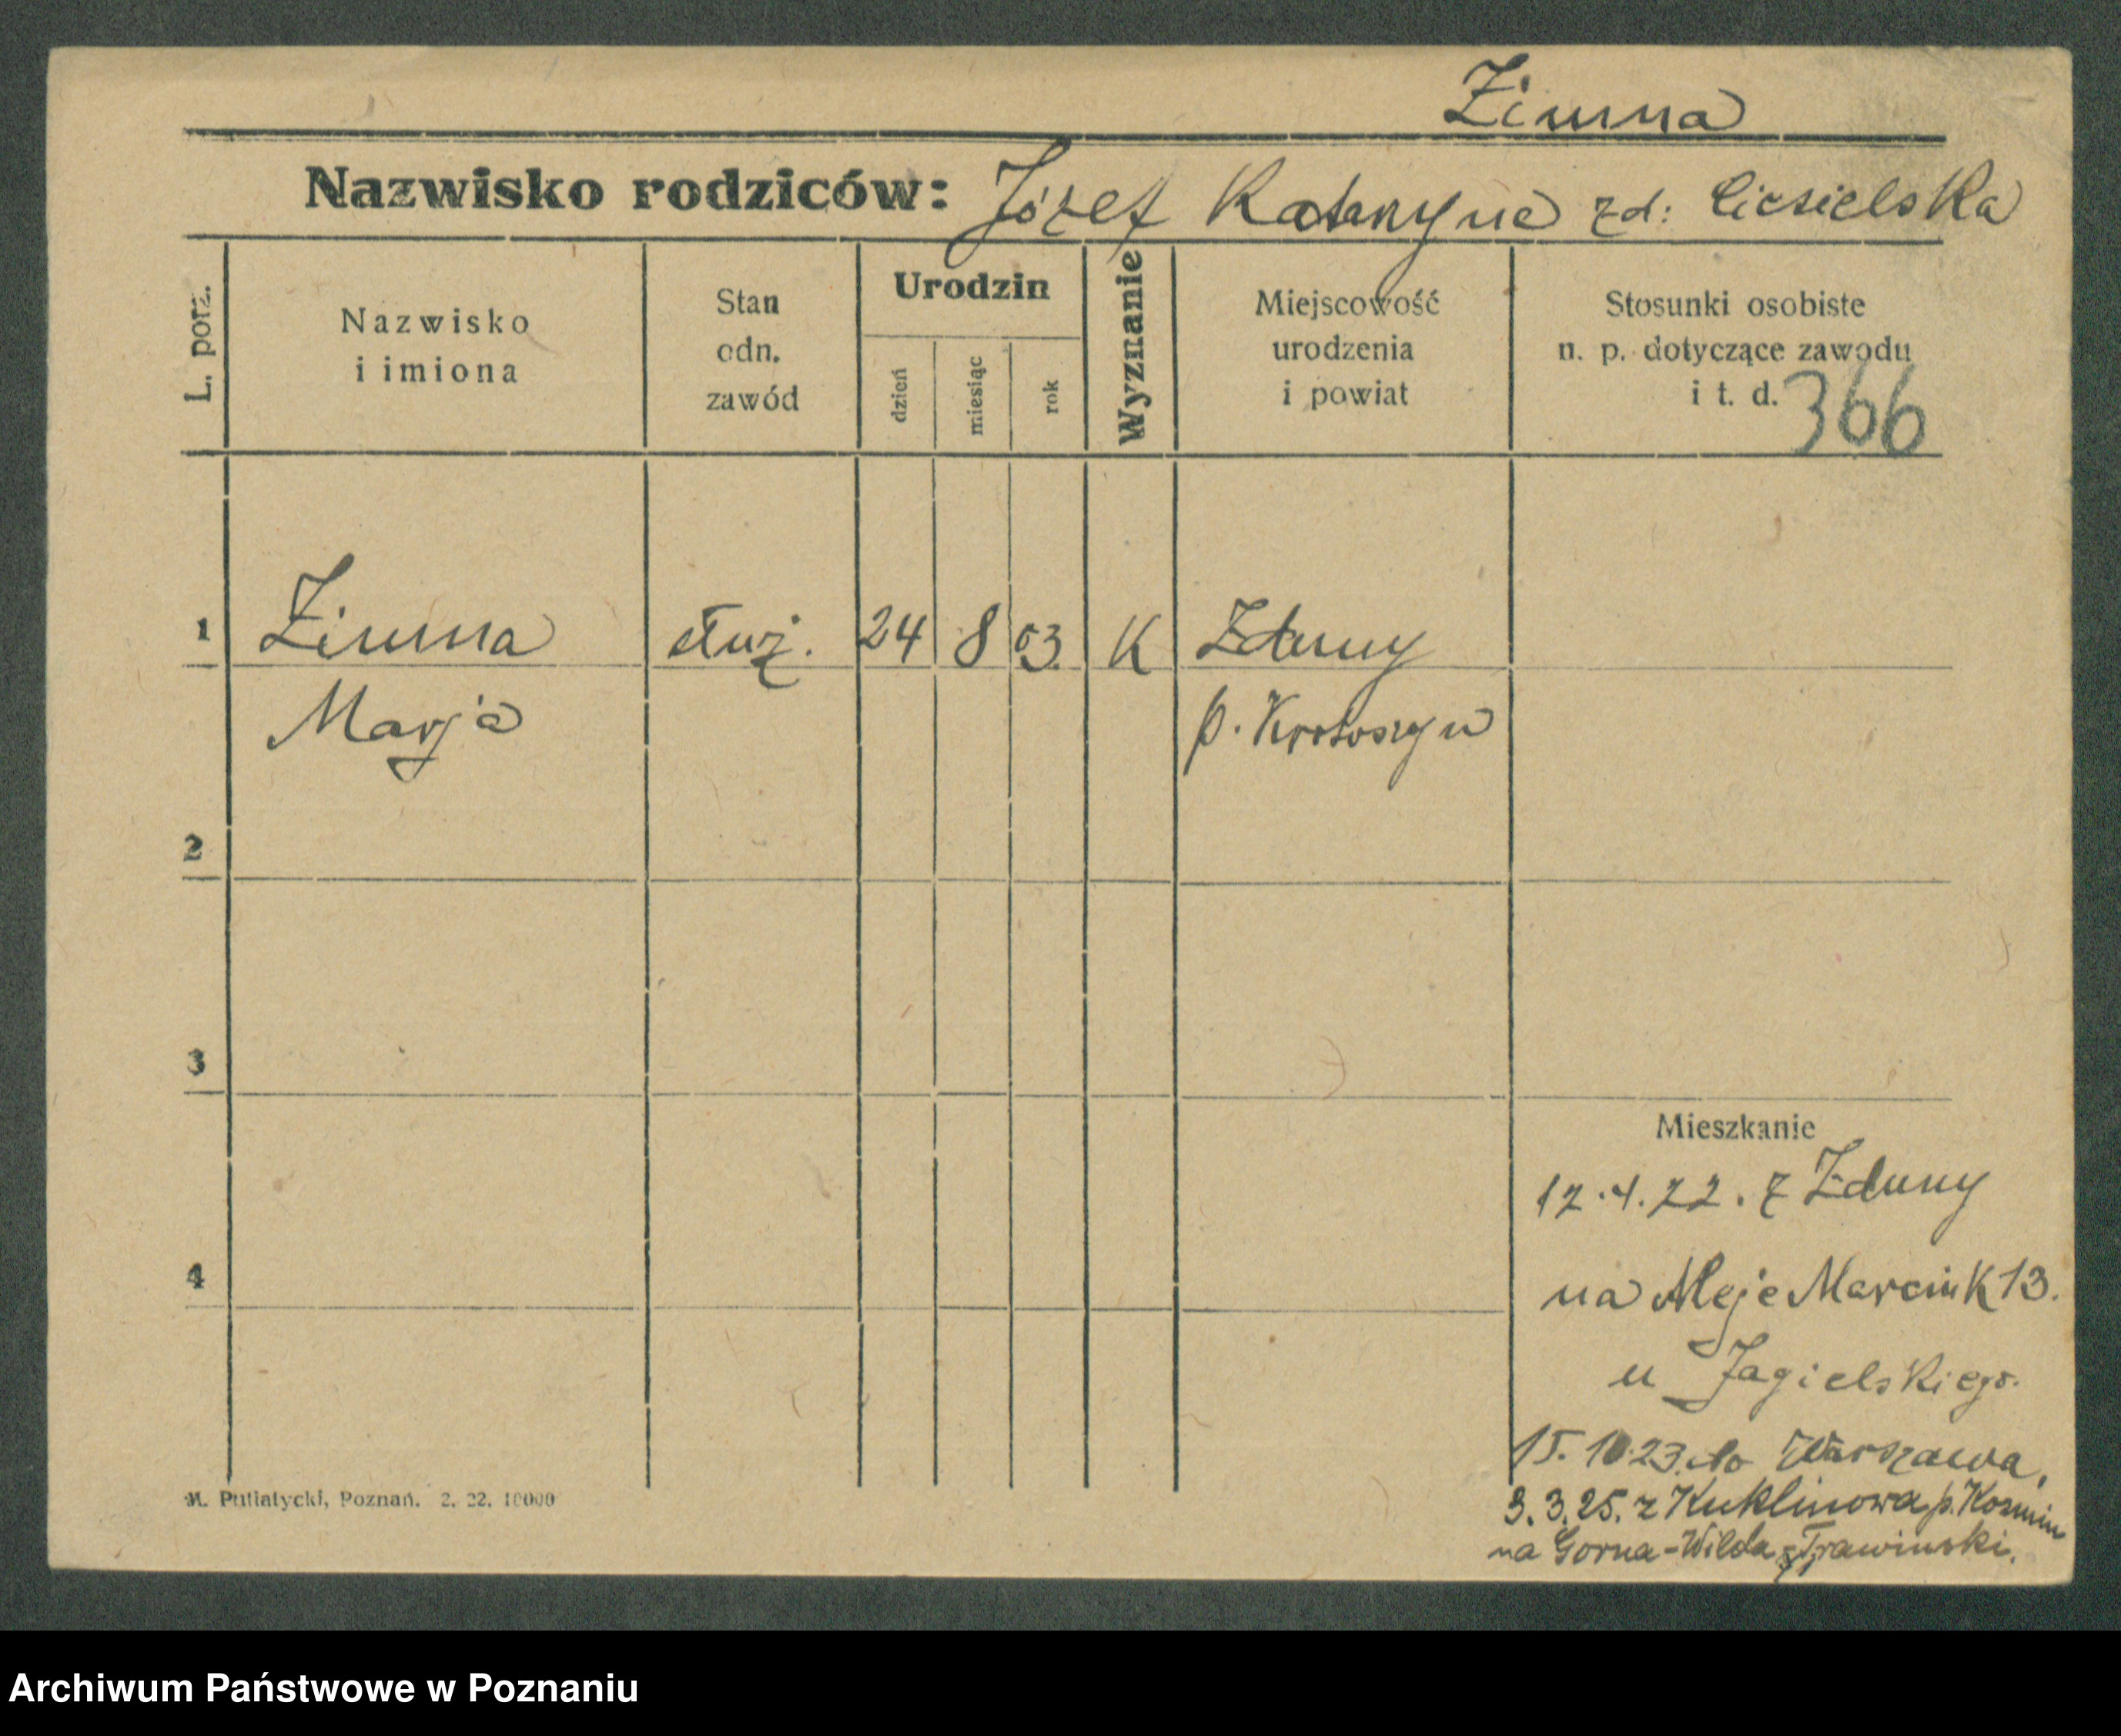 Zimna
Nazwisko rodziców: Józef Katarzyna zd: Ciesielska
L. porz.
Nazwisko
i imiona
Stan
odn.
zawód
Urodzin
dzień
miesiąc
rok
Wyznanie
Miejscowość
urodzenia
i powiat
Stosunki osobiste
n. p. dotyczące zawodu
i t. d. 366
1 Zimna służ. 24 8 03. K Zduny
Marja p. Krotoszyn
2
3
Mieszkanie
12.4.22. z Zduny
4 na Aleje Marcink 13.
u Jagielskiego.
15.10.23. do Warszawa,
3.3.25. z Kuklinowa p. Kozmin
na Gorna-Wilda Trawinski.
M. Putiatycki, Poznań. 2. 22. 10000
Archiwum Państwowe w Poznaniu